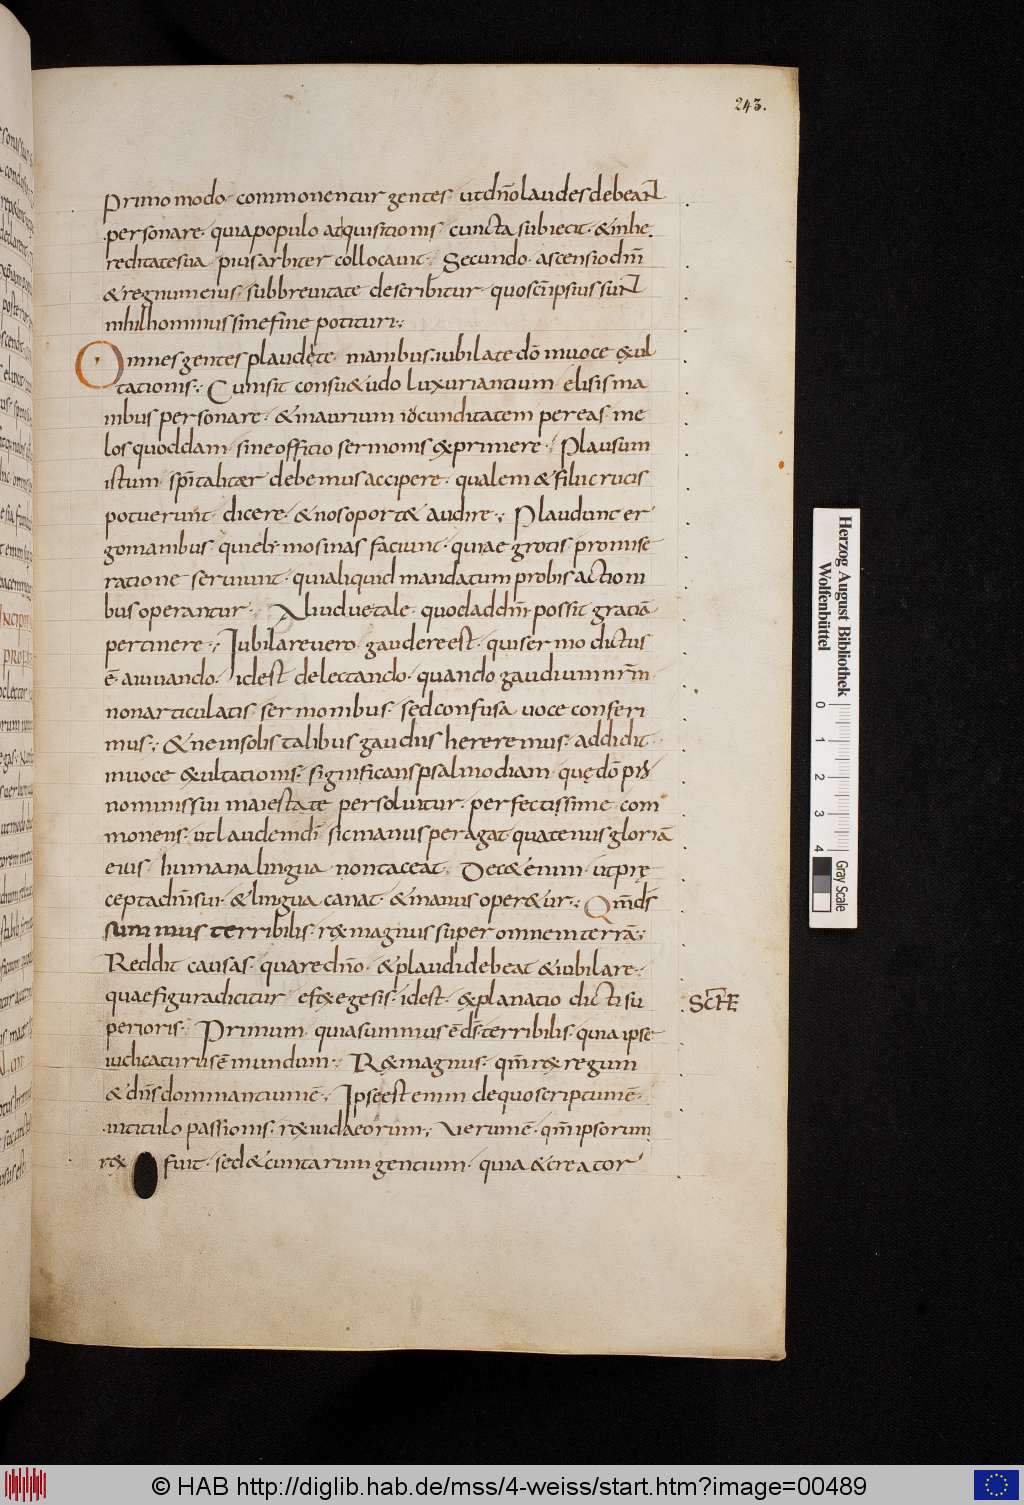 243.
Primo modo· commonentur gentes· ut dño laudes debeant
personare· quia populo adquisitionis cuncta subiecit· & in he
reditate sua pius arbiter collocavit· Secundo· ascensio dñi
& regnum eius· sub brevitate describitur· quos cũ ipsius sunt
nihil hominus sine fine potituri;
Omnes gentes plaudete manibus· iubilate dõ in voce exul
tationis; Cum sit consu&udo luxuriantium elisis ma
nibus personare· & in aurium iocunditatem per eas me
los quoddam sine officio sermonis exprimere· Plausum
istum sp̄italiter debemus accipere· qualem & filii crucis
potuerunt dicere· & nos oport& audire; Plaudunt er
go manibus· qui elymosinas faciunt· qui aegrotis promise
ratione serviunt· qui aliquid mandatum probis action
bus operantur· Aliud ve tale· quod ad dñi possit gratiã
pertinere; Iubilare vero gaudere est· qui sermo dictus
ẽ· a iuvando· idest delectando· quando gaudium nr̃m
non articulatis sermonibus· sed confusa voce conferi
mus; & ne in solis talibus gaudiis hereremus· addidit
in voce exultationis· significans psalmodiam quę dõ pro
nominis sui maiestate persolvitur· perfectissime com
monens· ut laudem dñi sic manus peragat quatenus gloriã
eius humana lingua non taceat· Dec& enim ut prę
cepta dñi sui· & lingua canat· & manus oper&ur; Qm̃ dñs
summus terribilis· rex magnus super omnem terrã;
Reddit causas· quare dño· & plaudi debeat & iubilare·
quae figura dicitur efexegesis· idest· explanatio dicti su
SCHE
perioris· Primum quia summus ẽ dñs· terribilis· quia ipse
iudicaturus ẽ mundum· Rex magnus· qm̃ rex regum
& dñs dominantium ẽ; Ipse est enim de quo scriptum ẽ·
in titulo passionis· rex iudaeorum; Verum ẽ· qm̃ ipsorum
rex fuit· sed & cunctarum gentium· quia & creator
Herzog August Bibliothek
Wolfenbüttel
0 1 2 3 4
Gray Scale
© HAB http://diglib.hab.de/mss/4-weiss/start.htm?image=00489